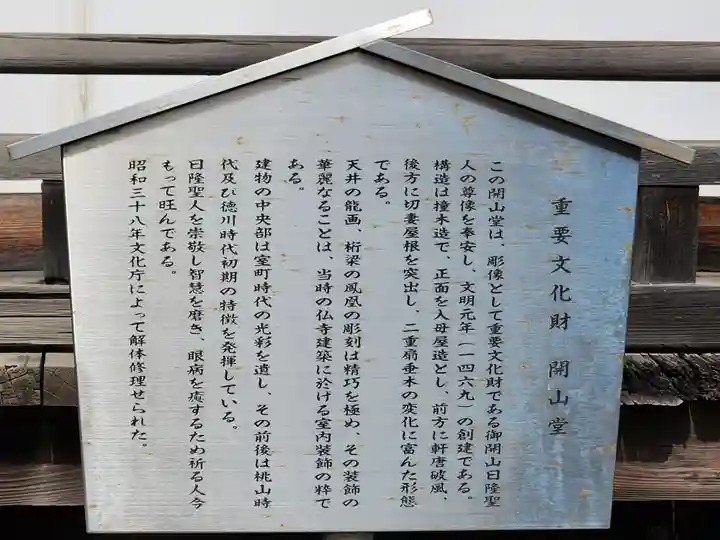 重要文化財　開山堂
この開山堂は、彫像として重要文化財である御開山日隆聖
人の尊像を奉安し、文明元年（一四六九）の創建である。
構造は撞木造で、正面を入母屋造とし、前方に軒唐破風、
後方に切妻屋根を突出し、二重扇垂木の変化に富んだ形態
である。
天井の龍画、桁梁の鳳凰の彫刻は精巧を極め、その装飾の
華麗なることは、当時の仏寺建築に於ける室内装飾の粋で
ある。
建物の中央部は室町時代の光彩を遺し、その前後は桃山時
代及び徳川時代初期の特徴を発揮している。
日隆聖人を崇敬し智慧を磨き、眼病を癒するため祈る人今
もって旺んである。
昭和三十八年文化庁によって解体修理せられた。